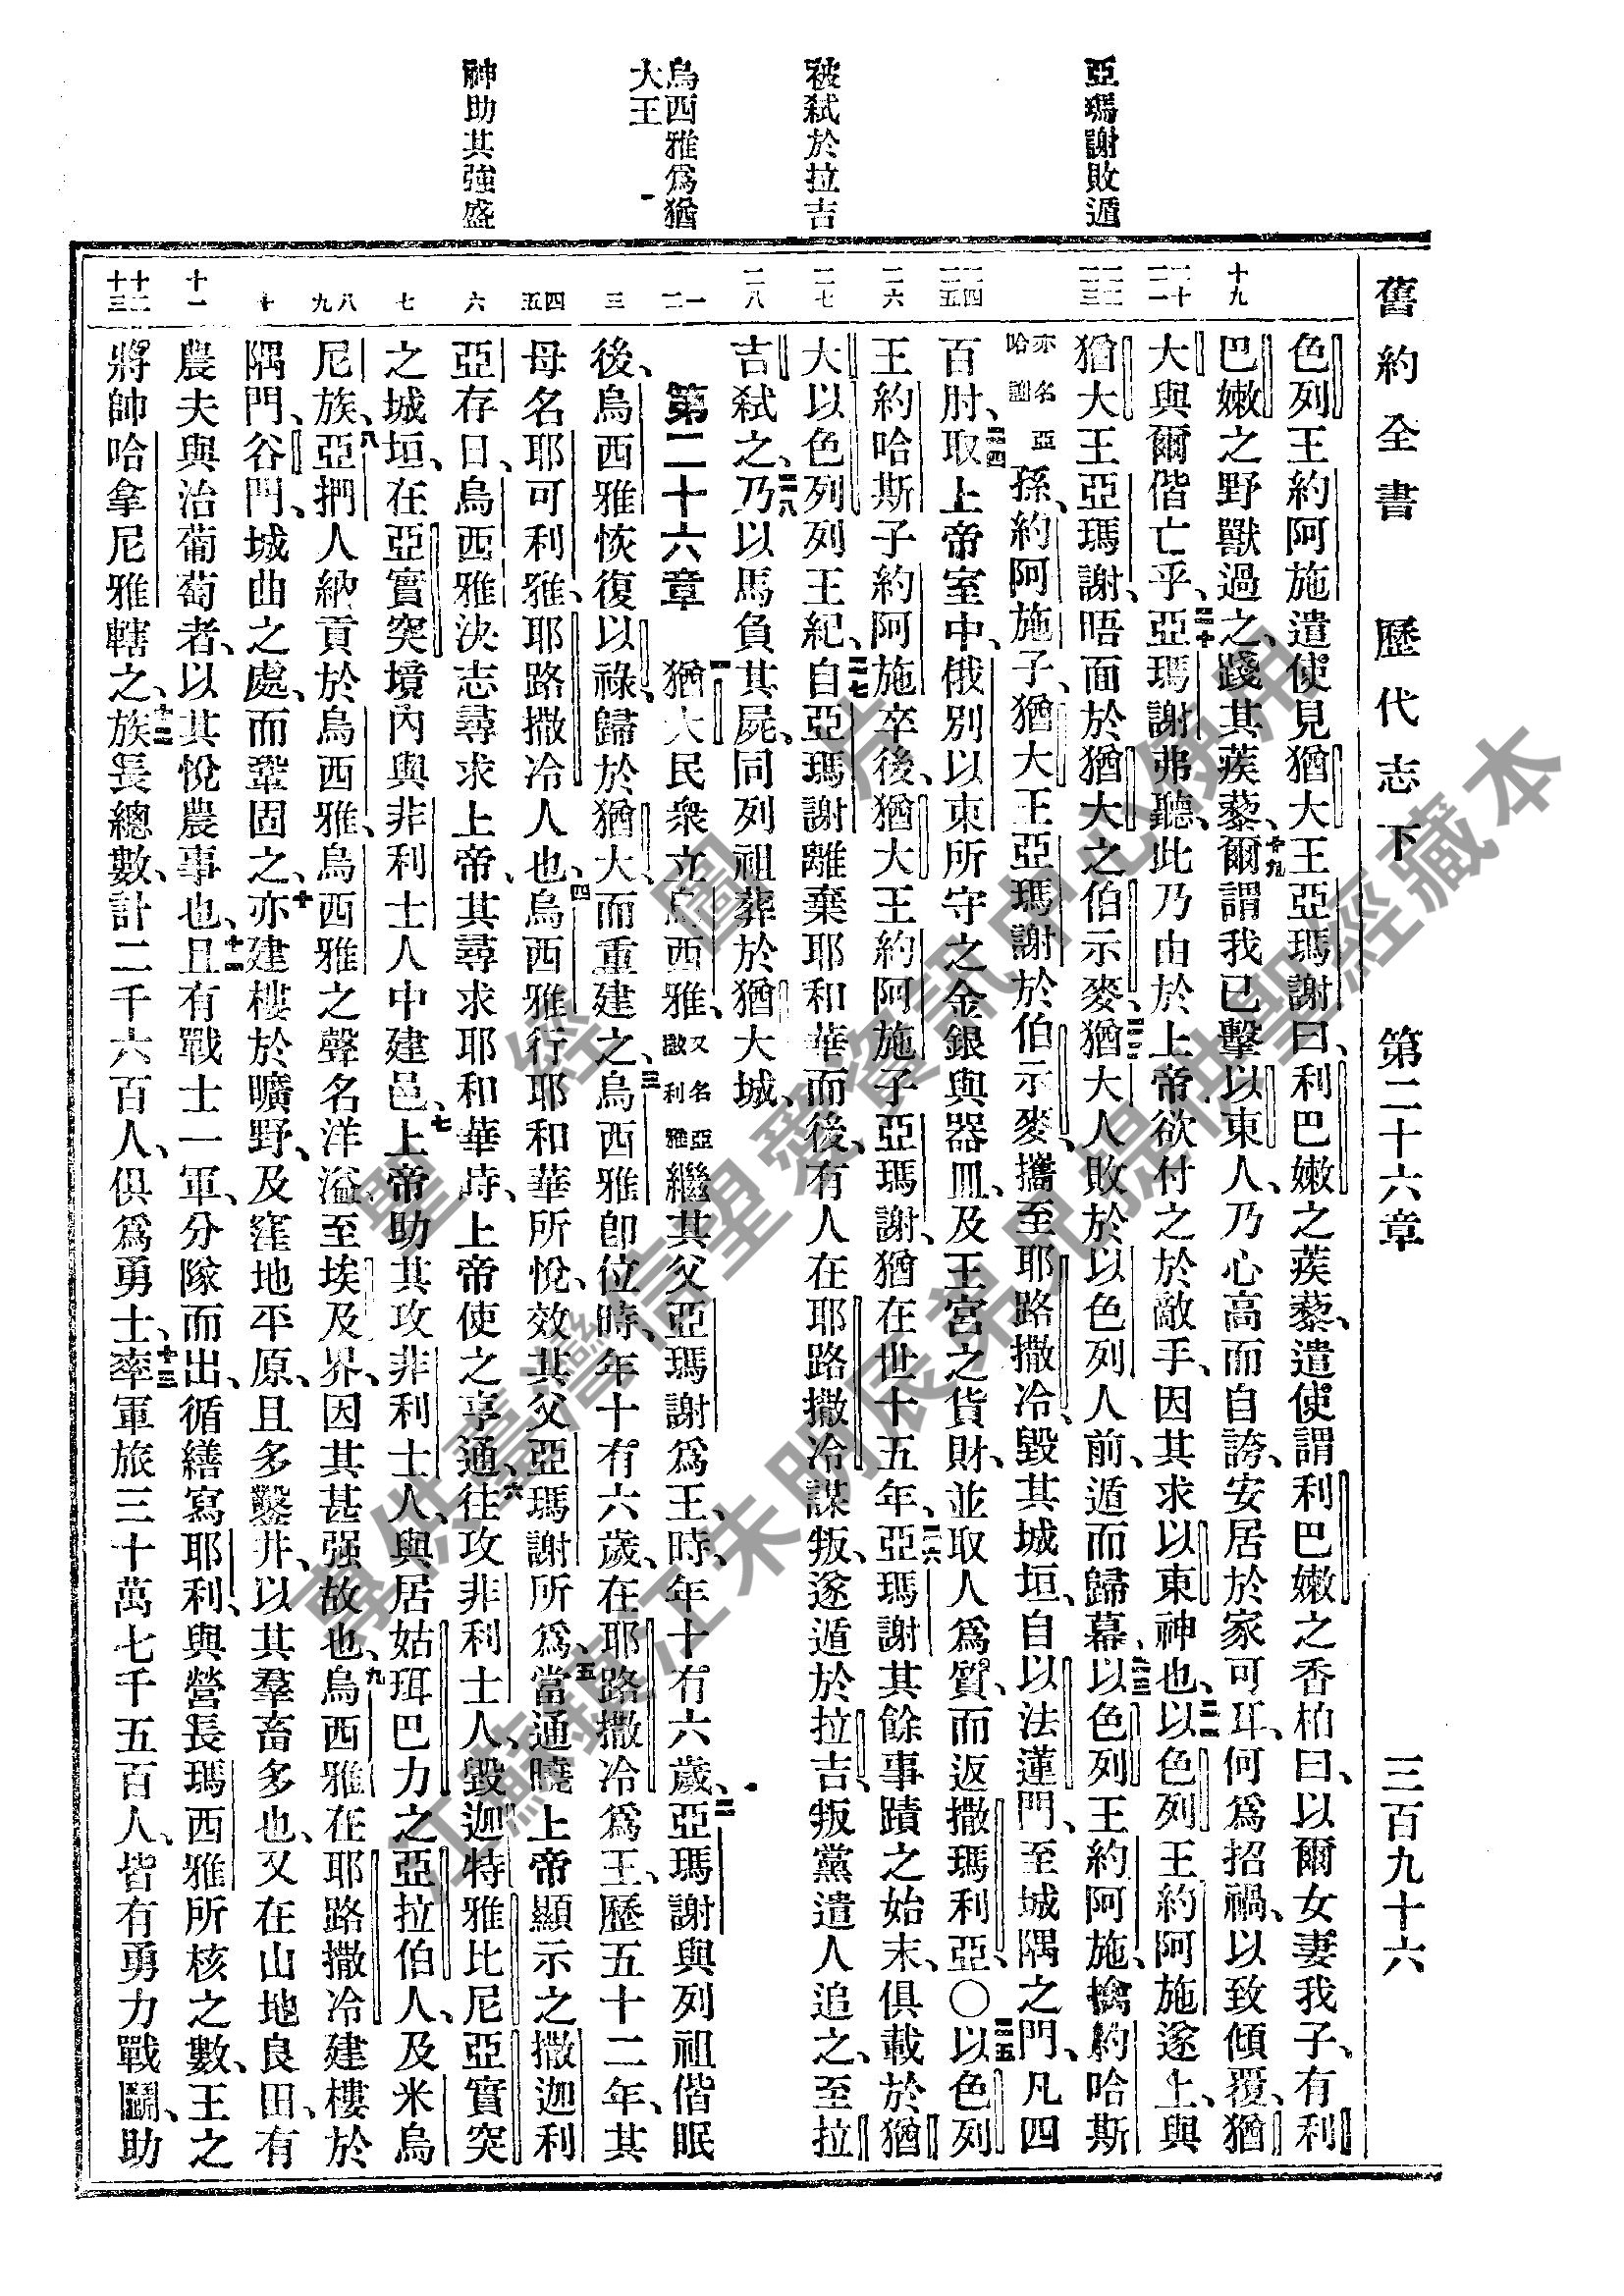 舊約全書 歷代志下 第二十六章 三百九十六
亞瑪謝敗遁
被弒於拉吉
烏西雅爲猶
大王
神助其強盛
十九
二十
二一
二二
二三
二四
二五
二六
二七
二八
一
二
三
四
五
六
七
八
九
十
十一
十二
十三
色列王約阿施遣使見猶大王亞瑪謝曰、利巴嫩之蒺藜、遣使謂利巴嫩之香柏曰、以爾女妻我子、有利
巴嫩之野獸過之、踐其蒺藜、十九爾謂我已擊以東人、乃心高而自誇、安居於家可耳、何爲招禍、以致傾覆、猶
大與爾偕亡乎、二十亞瑪謝弗聽、此乃由於上帝欲付之於敵手、因其求以東神也、二一以色列王約阿施遂上、與
猶大王亞瑪謝、晤面於猶大之伯示麥、二二猶大人敗於以色列人前、遁而歸幕、二三以色列王約阿施、擒約哈斯
亦名亞哈謝孫、約阿施子、猶大王亞瑪謝於伯示麥、攜至耶路撒冷、毀其城垣、自以法蓮門、至城隅之門、凡四
百肘、二四取上帝室中、俄別以東所守之金銀與器皿、及王宮之貨財、並取人爲質、而返撒瑪利亞、○二五以色列
王約哈斯子約阿施卒後、猶大王約阿施子亞瑪謝、猶在世十五年、二六亞瑪謝其餘事蹟之始末、俱載於猶
大以色列列王紀、二七自亞瑪謝離棄耶和華而後、有人在耶路撒冷謀叛、遂遁於拉吉、叛黨遣人追之、至拉
吉弒之、二八乃以馬負其屍、同列祖葬於猶大城、
第二十六章 一猶大民衆立烏西雅、又名亞敵利雅繼其父亞瑪謝爲王、時、年十有六歲、二亞瑪謝與列祖偕眠
後、烏西雅恢復以祿、歸於猶大、而重建之、三烏西雅卽位時、年十有六歲、在耶路撒冷爲王、歷五十二年、其
母名耶可利雅、耶路撒冷人也、四烏西雅行耶和華所悅、效其父亞瑪謝所爲、五當通曉上帝顯示之撒迦利
亞存日、烏西雅決志尋求上帝、其尋求耶和華時、上帝使之亨通、六往攻非利士人、毀迦特雅比尼亞實突
之城垣、在亞實突境內、與非利士人中建邑、七上帝助其攻非利士人、與居姑珥巴力之亞拉伯人、及米烏
尼族、八亞捫人納貢於烏西雅、烏西雅之聲名洋溢、至埃及界、因其甚强故也、九烏西雅在耶路撒冷建樓於
隅門、谷門、城曲之處、而鞏固之、十亦建樓於曠野、及窪地平原、且多鑿井、以其羣畜多也、又在山地良田、有
農夫與治葡萄者、以其悅農事也、十一且有戰士一軍、分隊而出、循繕寫耶利、與營長瑪西雅所核之數、王之
將帥哈拿尼雅轄之、十二族長總數、計二千六百人、俱爲勇士、十三率軍旅三十萬七千五百人、皆有勇力戰鬭、助
聖經圖片
專供臺灣信望愛資訊中心使用
江蘇鎮江朱明辰弟兄提供聖經藏本